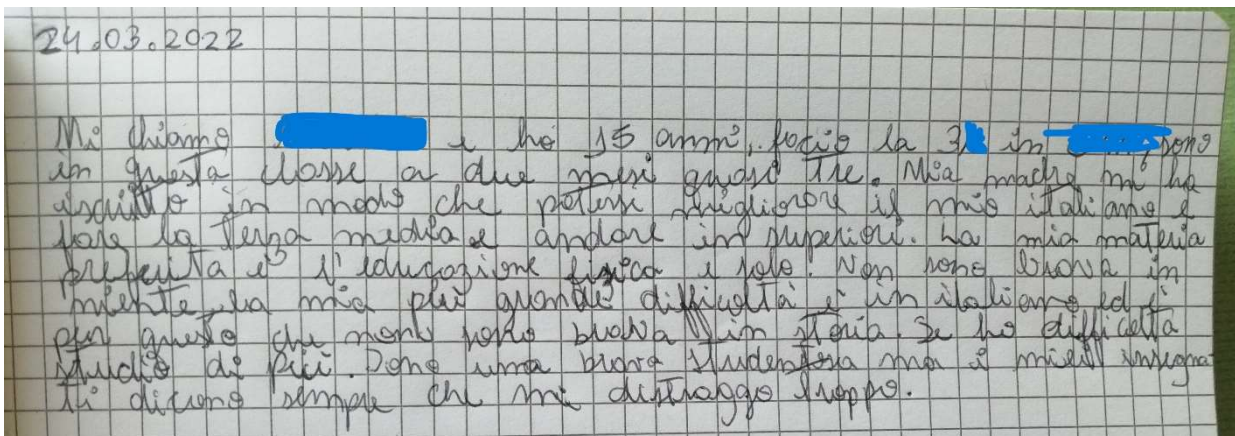 24.03.2022
Mi chiamo e ho 15 anni, facio la 3 in sono
in questa classe a due mesi quasi tre. Mia madre mi ha
iscritto in modo che potessi migliorare il mio italiano e
fare la terza media e andare in superiori. La mia materia
preferita è l'educazione fisica e solo. Non sono brava in
niente, la mia più grande difficoltà è in italiano ed è
per questo che non sono brava in storia. Se ho difficoltà
studio di più. Sono una brava studentessa ma i miei insegna
ti dicono sempre che mi distraggo troppo.